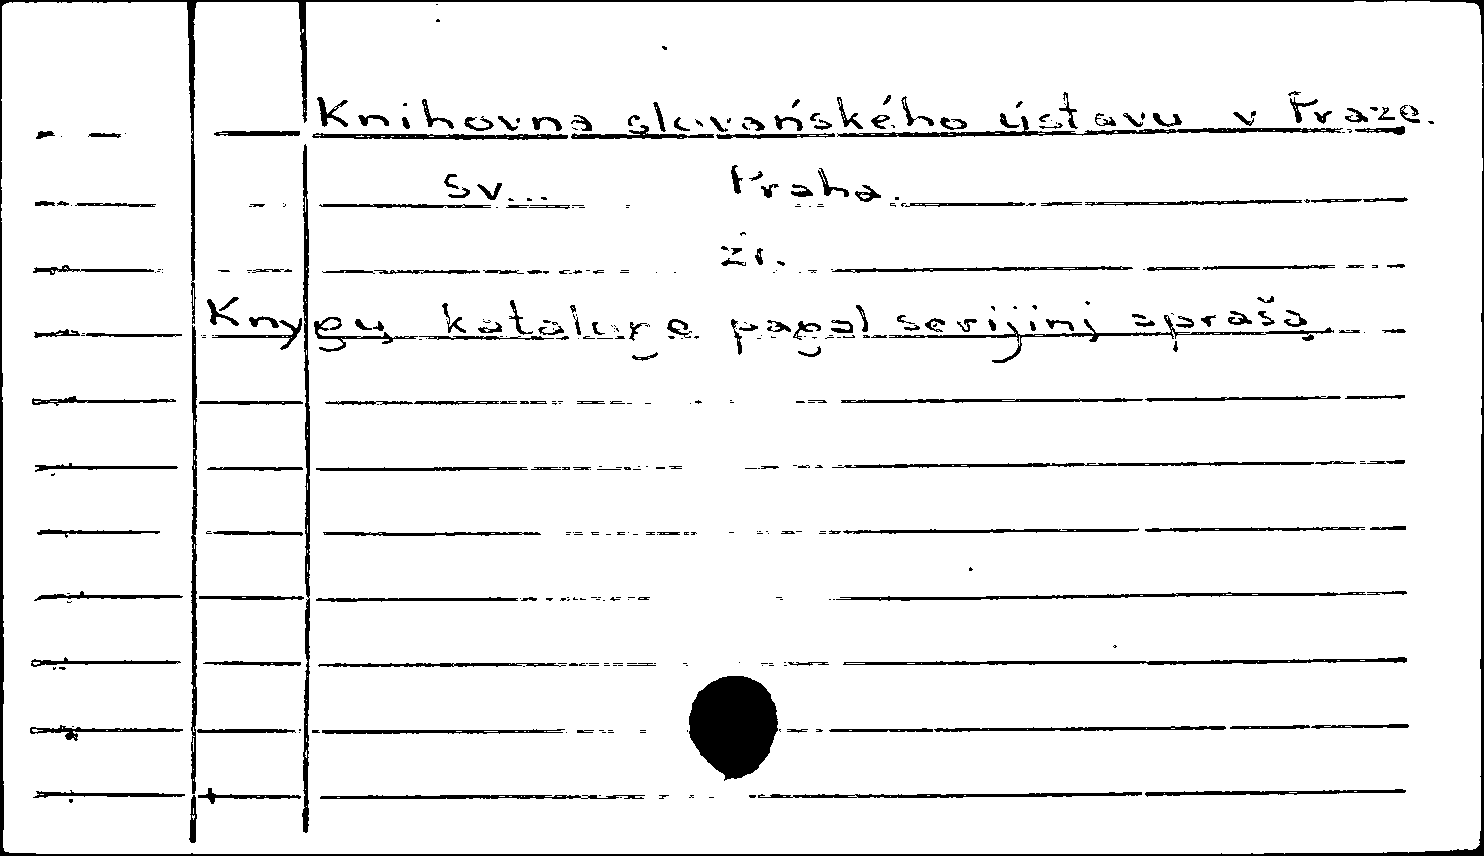 Knihovna slovańského ústavu v Praze.
Sv... Praha.
žr.
Knygų kataloge pagal serijinį aprašą